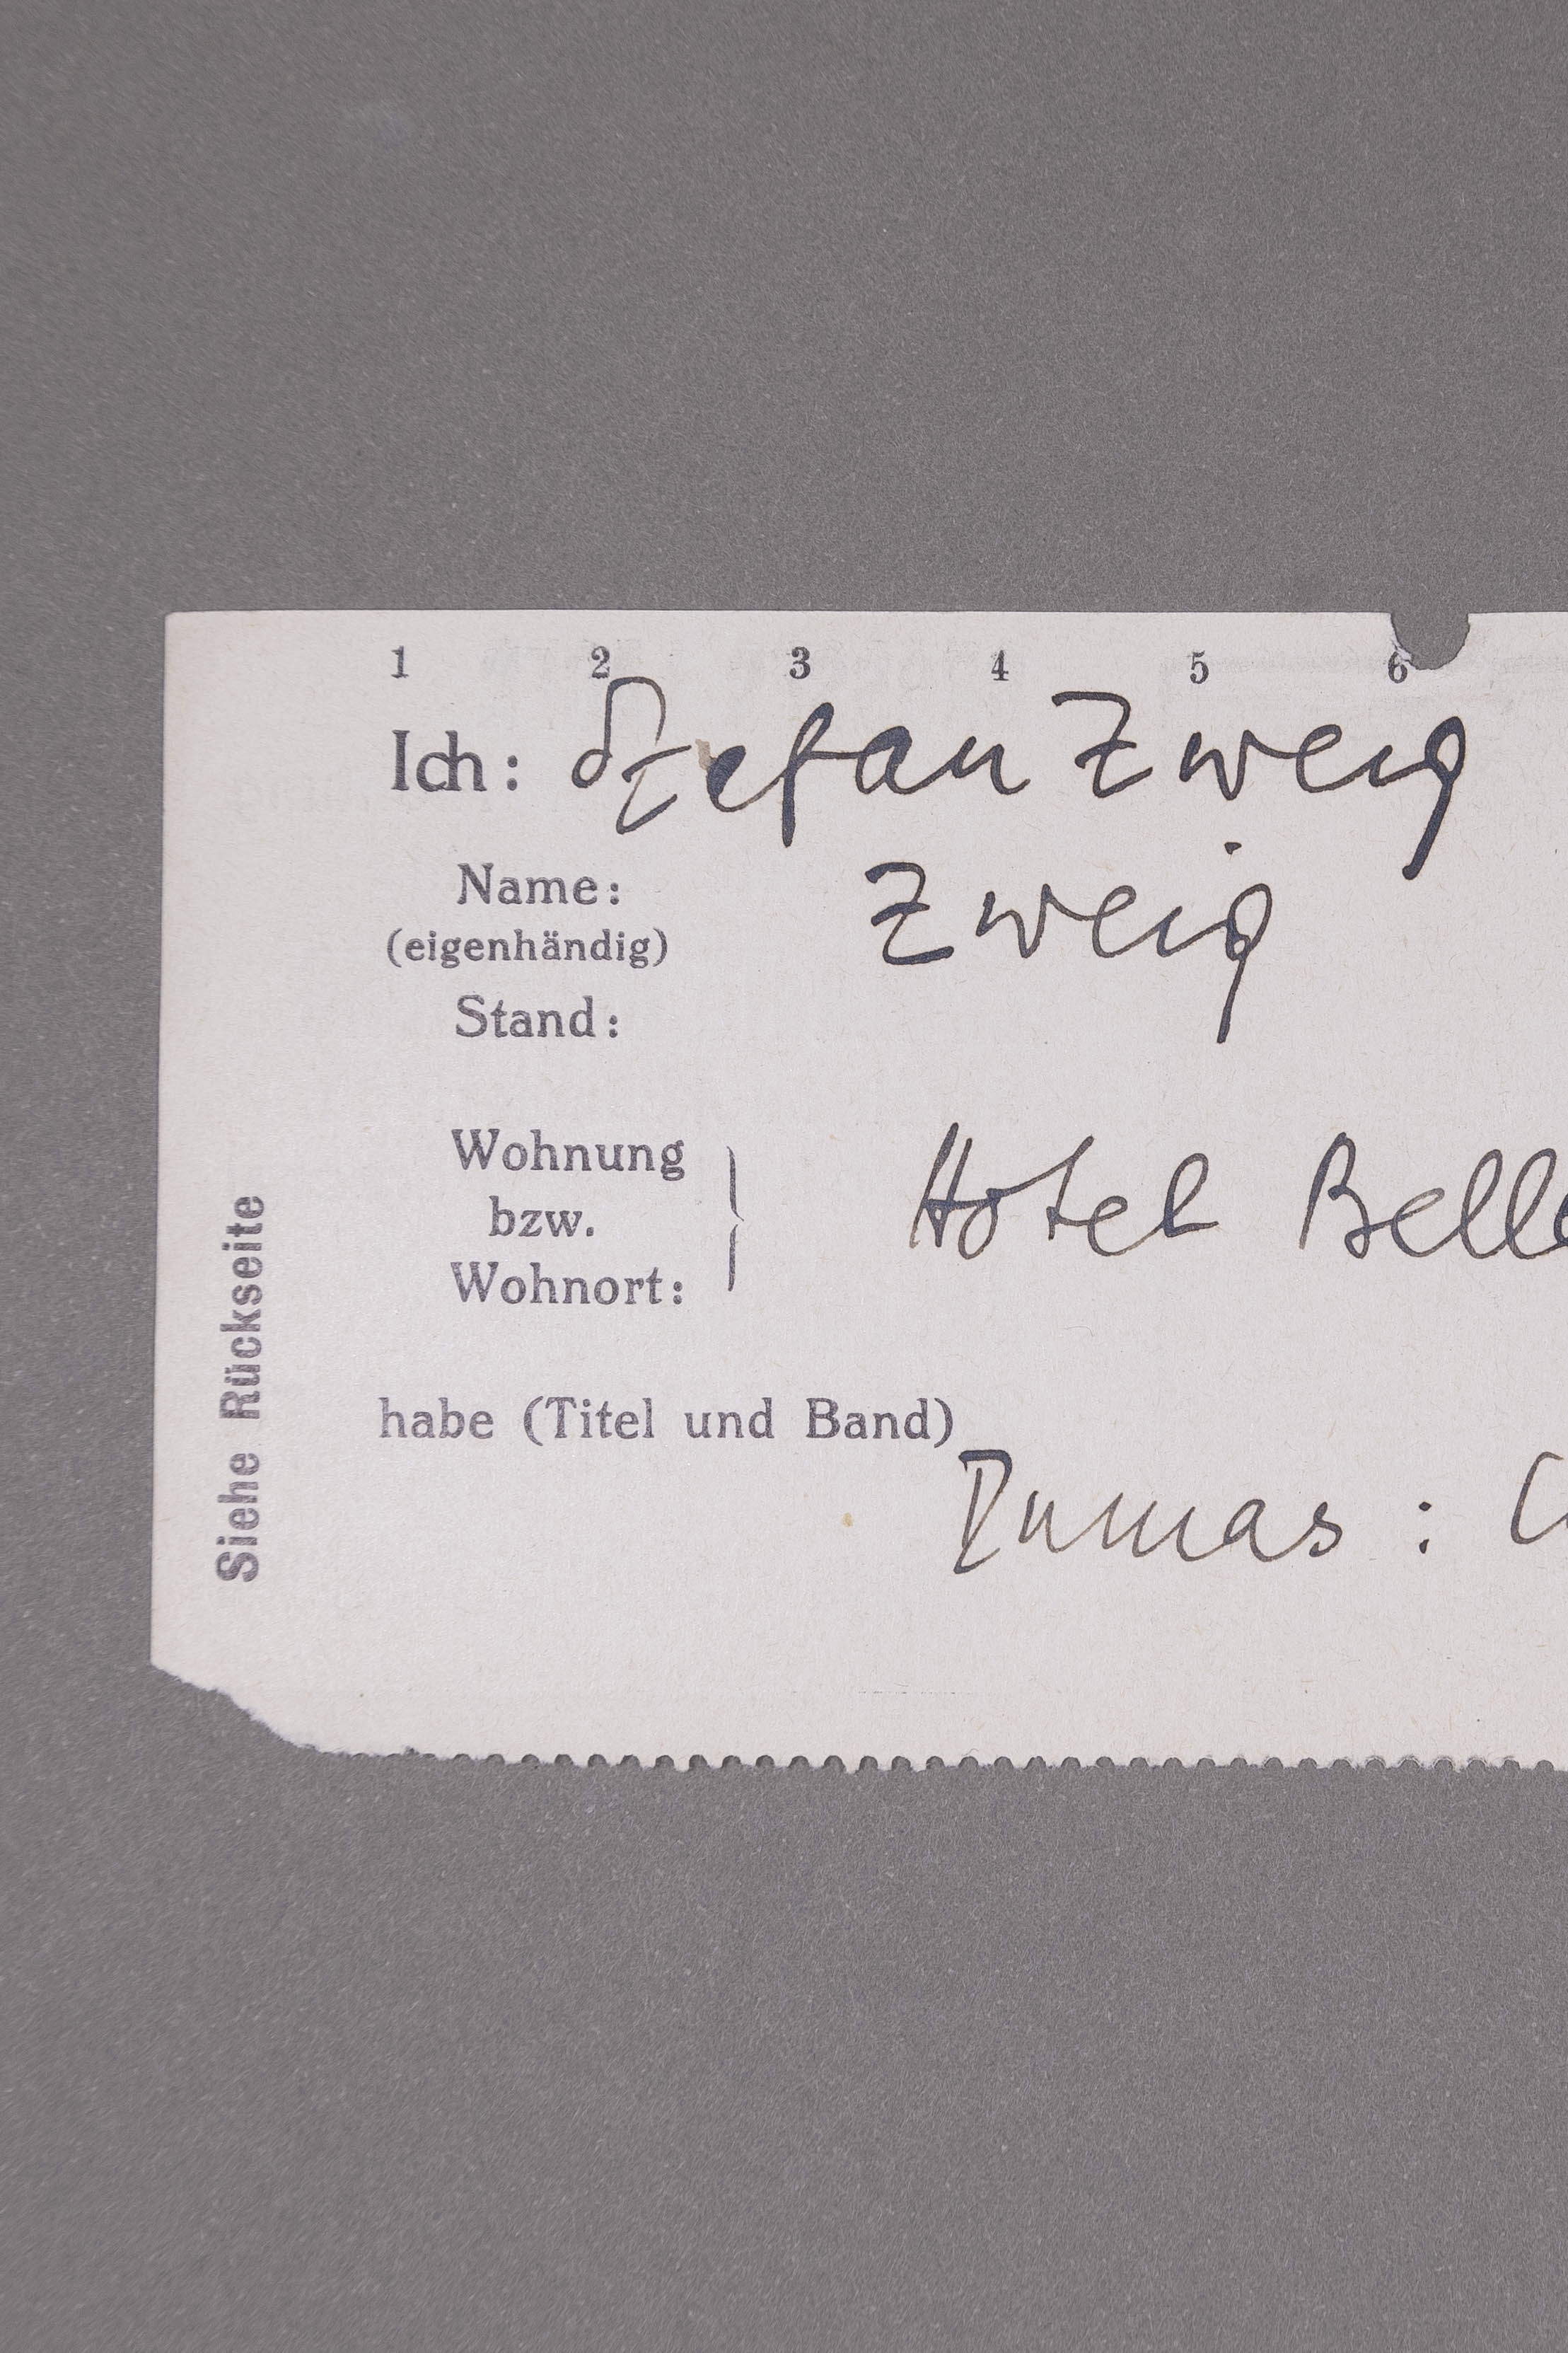 1 2 3 4 5 6
Ich: Stefan Zweig
Name: Zweig
(eigenhändig)
Stand:
Wohnung
bzw.
Wohnort:
Hotel Belle
habe (Titel und Band)
Dumas :
Siehe Rückseite